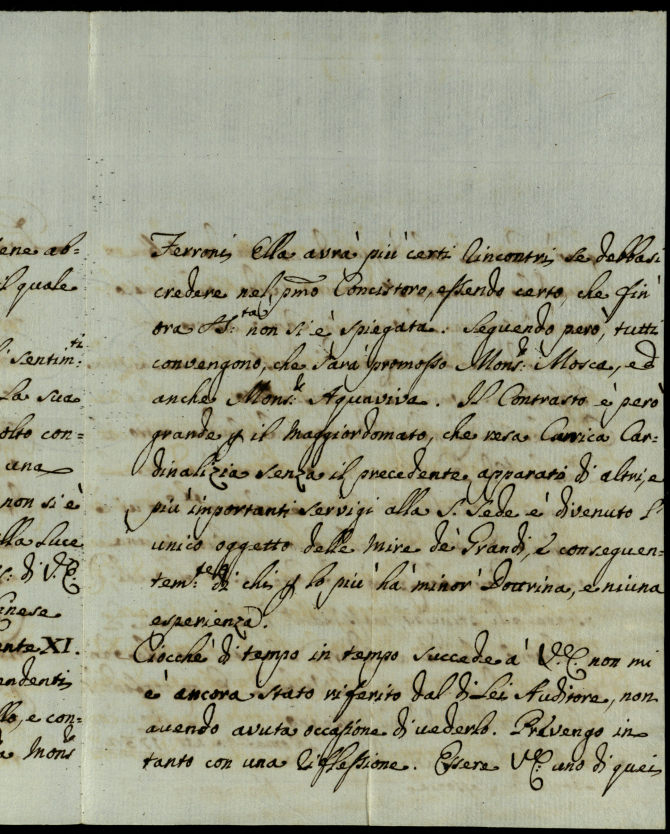 ene ab=
il quale
i sentim:ti
La sua
olto con=
una
non si è
alla Luce
di V.E.
inese
ente XI.
endenti
llo, e con=
a Mons.r
Ferroni, Ella avrà più certi rincontri, se debbasi
credere nel pmo Concistoro, essendo certo, che fin'
ora S. S:tà non si è spiegata. Seguendo però, tutti
convengono, che sarà promosso Mons:r Mosca, ed
anche Mons:r Aquaviva. Il Contrasto è però
grande p il Maggiordomato, che resa Carrica Car=
dinalizia senza il precedente apparato di altri, e
più importanti servigi alla S. Sede è divenuto l'
unico oggetto delle mire de' Grandi, e conseguen=
tem:te di chi p lo più ha minor' Dottrina, e niuna
esperienza.
Ciocchè di tempo in tempo succede a' V.E. non mi
è ancora stato riferito dal di Lei Auditore, non
avendo avuta occasione di vederlo. Prevengo in
tanto con una riflessione. Essere V.E. uno di quei